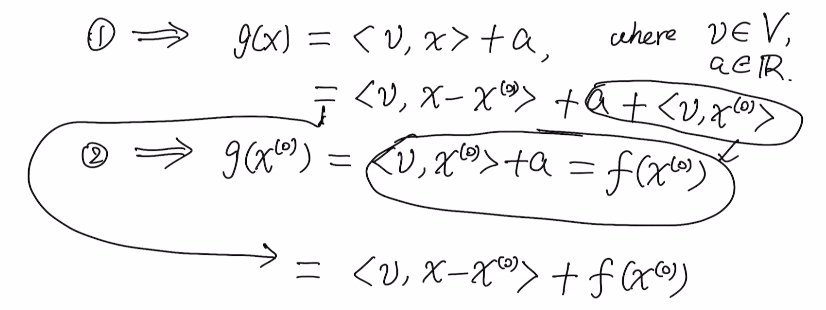 ① ⟹ g(x) = <v, x> + a, where v ∈ V,
a ∈ ℝ.
= <v, x - x⁽⁰⁾> + a + <v, x⁽⁰⁾>
② ⟹ g(x⁽⁰⁾) = <v, x⁽⁰⁾> + a = f(x⁽⁰⁾)
= <v, x - x⁽⁰⁾> + f(x⁽⁰⁾)